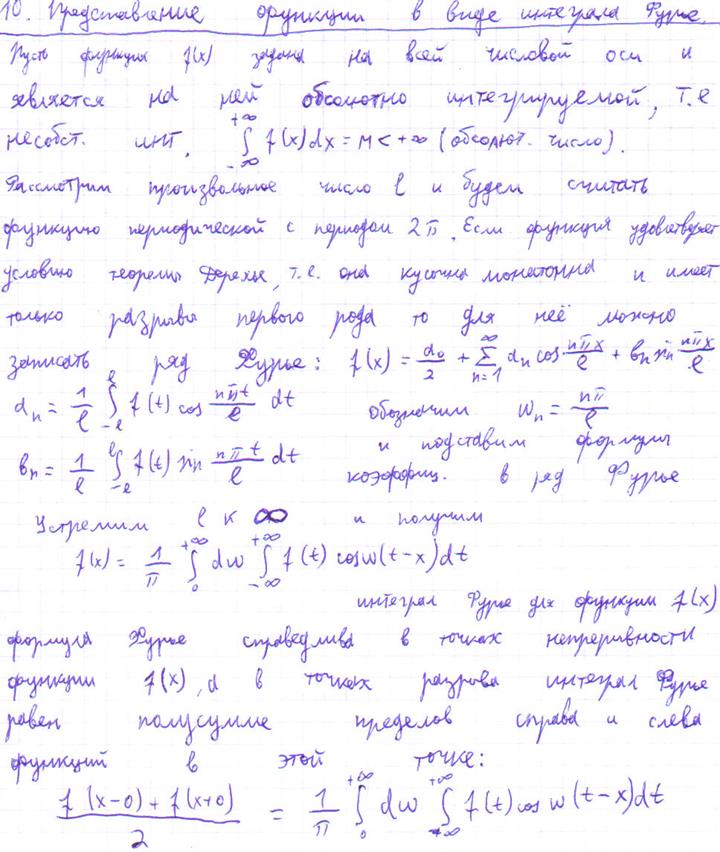 10. Представление функции в виде интеграла Фурье.
Пусть функция f(x) задана на всей числовой оси и
является на ней абсолютно интегрируемой, т.е
несобст. инт. ∫_{-∞}^{+∞} f(x)dx = M < +∞ (абсолют. число).
Рассмотрим произвольное число l и будем считать
функцию периодической с периодом 2π. Если функция удовлетворяет
условию теоремы Дерехле, т.е. она кусочна монотонна и имеет
только разрывы первого рода то для неё можно
записать ряд Фурье: f(x) = a₀/2 + ∑_{n=1}^{∞} aₙ cos nπx/l + bₙ sin nπx/l
aₙ = 1/l ∫_{-l}^{l} f(t) cos nπt/l dt обозначим wₙ = nπ/l
bₙ = 1/l ∫_{-l}^{l} f(t) sin nπt/l dt и подставим формулы
коэффиц. в ряд Фурье
Устремим l к ∞ и получим
f(x) = 1/π ∫_{0}^{+∞} dw ∫_{-∞}^{+∞} f(t) cos w(t-x)dt
интеграл Фурье для функции f(x)
формула Фурье справедлива в точках непреривности
функции f(x), а в точках разрова интеграл Фурье
равен полусумме пределов справа и слева
функций в этой точке:
(f(x-0) + f(x+0))/2 = 1/π ∫_{0}^{+∞} dw ∫_{-∞}^{+∞} f(t) cos w(t-x)dt